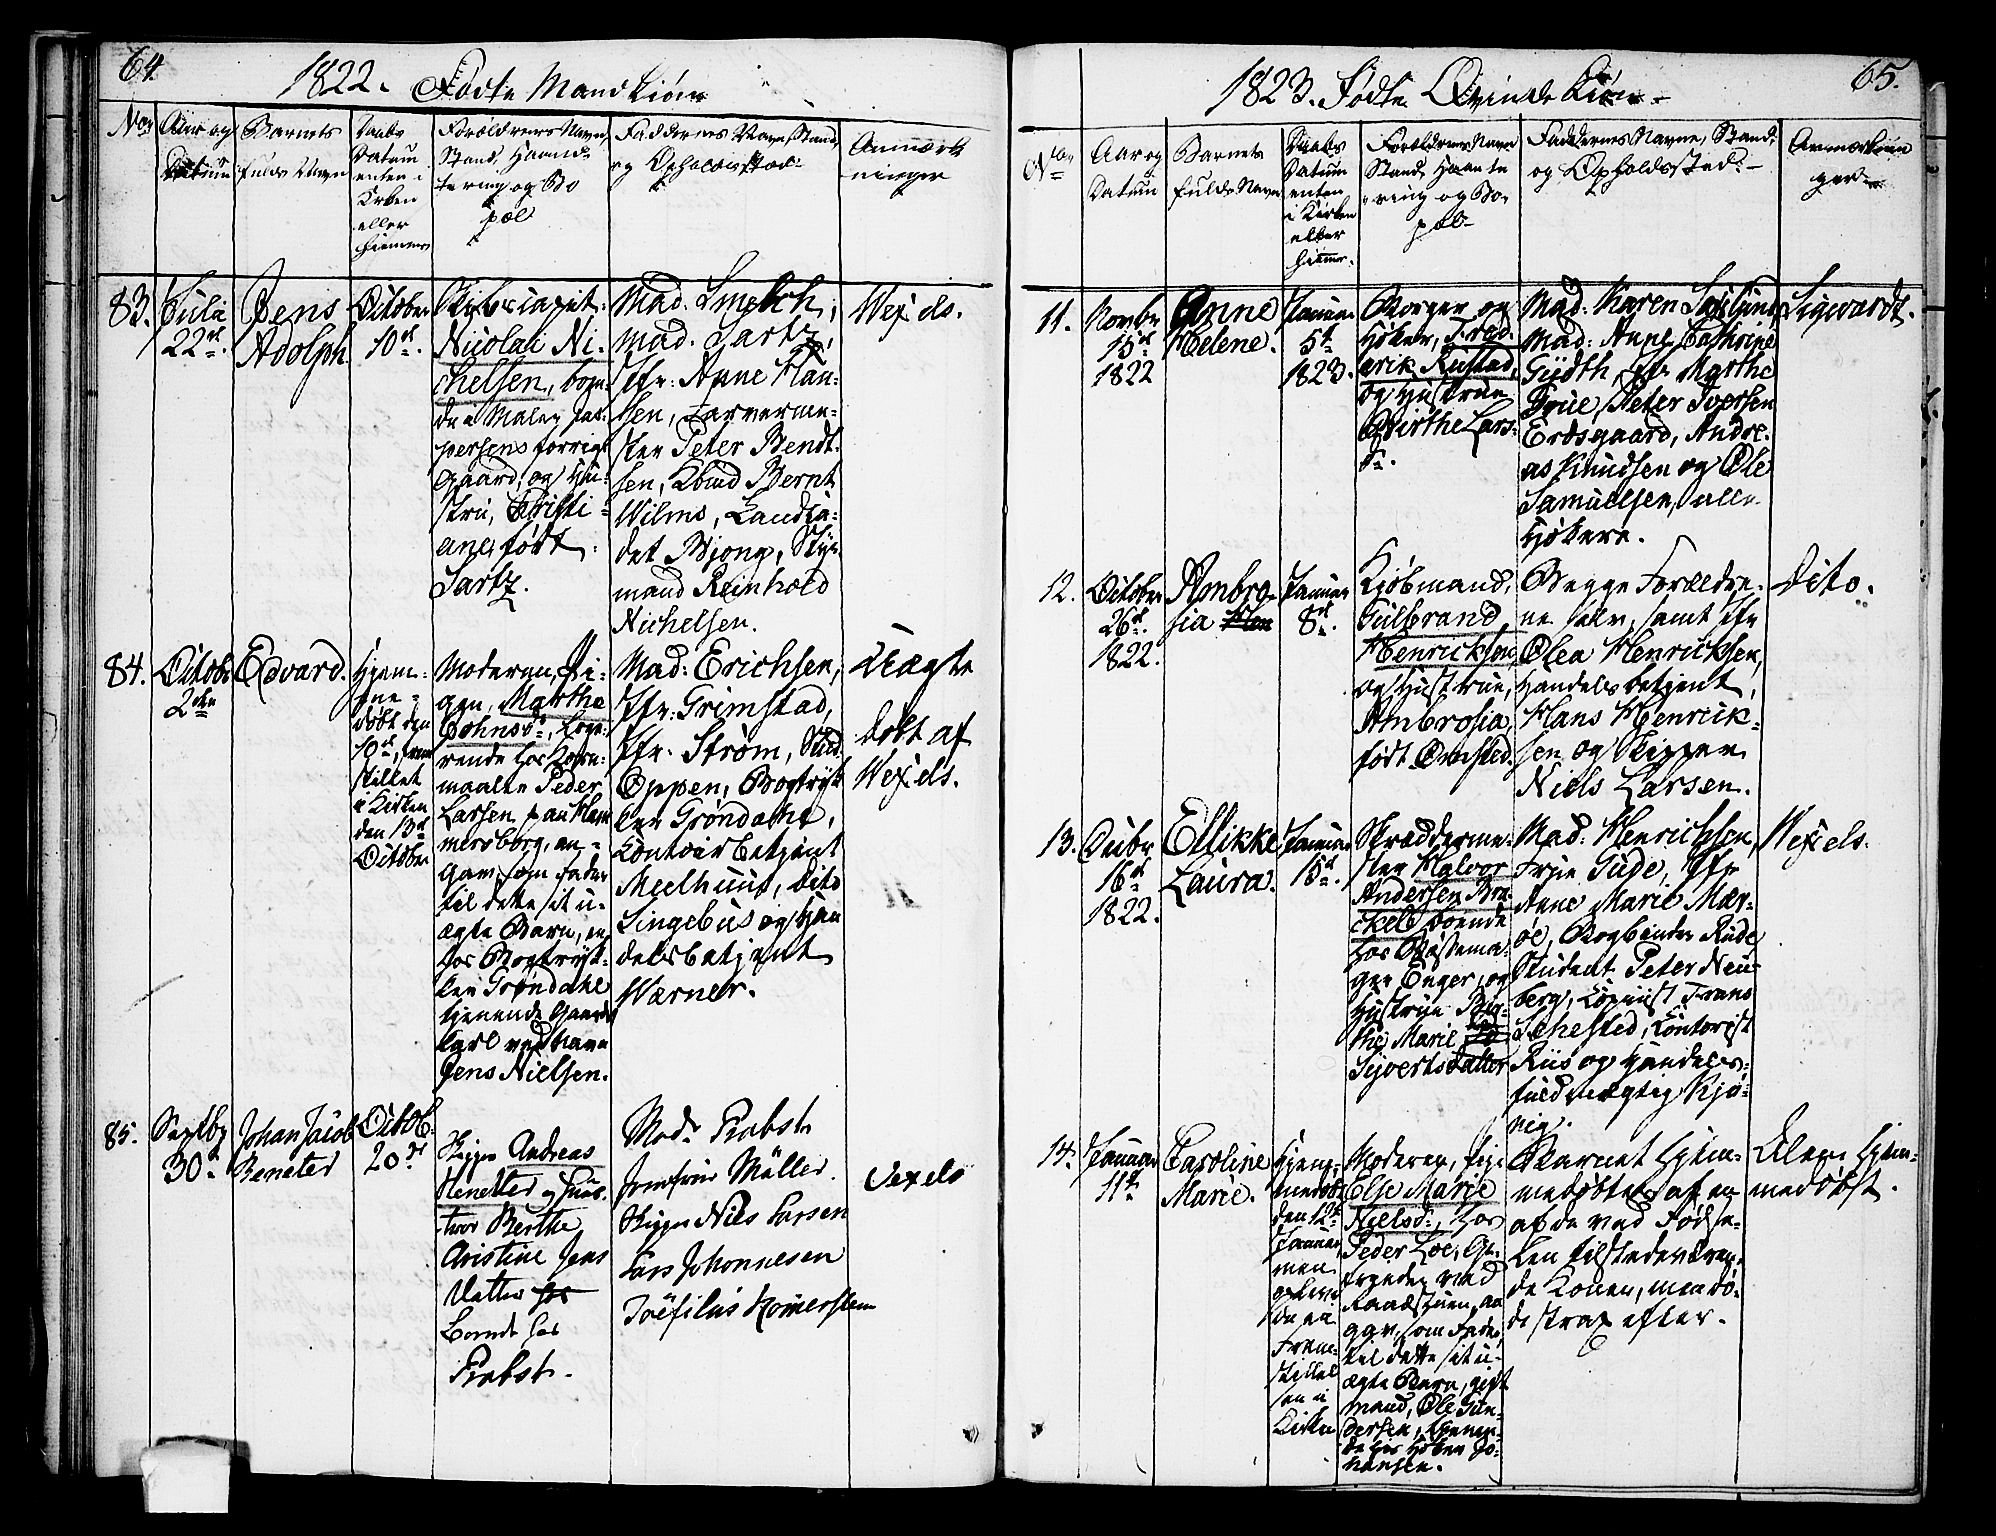 64.
1822. Fødte Mandkiøn
No
Aar og
Datum
Barnets
fulde Navn
Daabs
Datum
enten i
Kirken
eller
hiemme
Forældrenes Navn,
Stand, Haand-
tering og Bo
pæl
Faddernes Navn, Stand,
og Opholdssted
Anmærk
ninger
83.
Julii
22de.
Jens
Adolph
October
10de.
Skibscapit:
Nicolai Ni-
chelsen, boen-
de i Maler Jes-
persens forrige
Gaard, og Hu-
stru, Christi-
ane født
Sartz.
Mad. Smebch,
Mad. Sartz,
Jfr. Anne Han-
sen, Farverme-
ster Peter Bendt-
sen, Kbmd Bernt
Wilms, Landca-
det Bjong, Styr-
mand Reinhold
Nichelsen.
Wexels.
84.
October
2den
Edvard.
Hjem-
me-
døbt den
10de, frem
stillet
i Kirken
den 13de
October
Moderen, Pi-
gen, Marthe
Johnsd:, Loge-
rende hos Korn-
maaler Peder
Larsen paa Ham
mersborg, an-
gav som Fader
til dette sit u-
ægte Barn, en
hos Bogtryk-
ker Grøndahl
tjenende Gaards
karl ved Navn
Jens Nielsen.
Mad: Erichsen,
Jfr: Grimstad,
Jfr. Strøm, Stud.
Oppen, Bogtryk
ker Grøndahl,
Contoirbetjent
Meelhuus, Dito
Singebus og Han
delsbetjent
Warner.
Uægte
Døbt af
Wexels.
85.
Septbr
30te
Johan Jacob
Benater
Octob.
20de
Skipper Andreas
Henetter og Hus-
true Berthe
Cristine Jens
Datter
Boende hos
Probst.
Mad. Probst
Jomfrue Müller.
Skipper Niels Larsen
Lars Johannesen
Toefilus Romerstem
Vexels
65.
1823. Fødte Qvindekiøn
No
Aar og
Datum
Barnets
fulde Navn
Daabs
Datum
enten
i Kirken
eller
hiemme.
Forældrenes Navn
Stand, Haandte
ring og Bo-
pæl
Faddernes Navne, Stand,
og Opholdssted.
Anmærknin
ger
11.
Novbr
15de
1822
Anne
Helene.
Januar
5te
1823.
Borger og
Høker, Fred-
erik Rustad,
og Hustrue
Birthe Lars-
d:.
Mad: Karen
Mad: Anne Cathrine
Gydth, Jfr Marthe
True, Peter Iversen
Erdsgaard, Andre-
as Knudsen og Ole
Samuelsen, alle
Høkere.
Sigwardt.
12.
October
26de.
1822.
Ambro-
sia
Januar
8de.
Kjøbmand,
Gulbrand
Henricksen,
og Hustrue,
Ambrosia
født Ornsted.
Begge Forældre-
ne selv, samt Jfr
Olea Henricksen,
Handelsbetjent,
Hans Henrick-
sen og Skipper
Niels Larsen.
Dito.
13.
Decbr
16de
1822.
Ellikke
Laura.
Januar
15de.
Skræderme-
ster Halvor
Andersen Bra-
chel boende
hos Bøssema-
ger Enger, og
Hustrue Bir-
the Marie
Syvertsdatter
Mad: Henrichsen,
Frue Gude, Jfr
Anne Marie Mær-
øe, Bogbinder Rude
Student Peter Neu-
berg, Copiist Frans
Schested, Contorist
Riis og Handels-
fuldmægtig Kjø-
nig.
Wexels.
14.
Januar
11te
Caroline
Marie.
Hjem-
medøbt
den 12te
Januar
men
opleve
de ei
Frem-
stillel
sen i
Kirken
Moderen, Pige
Else Marie
Nielsd:, hos
Peder Loe,
ved
Raadstuen, an
gav, som Fader
til dette sit u-
ægte Barn, gift
Mand, Ole Gun-
dersen, tjenen-
de hos Høker Jo-
hansen.
Barnet hjem-
medøbtes af en
af de ved Føds-
len tilstedeværen-
de Koner, men dø-
de strax efter.
Alene hjem-
medøbt.